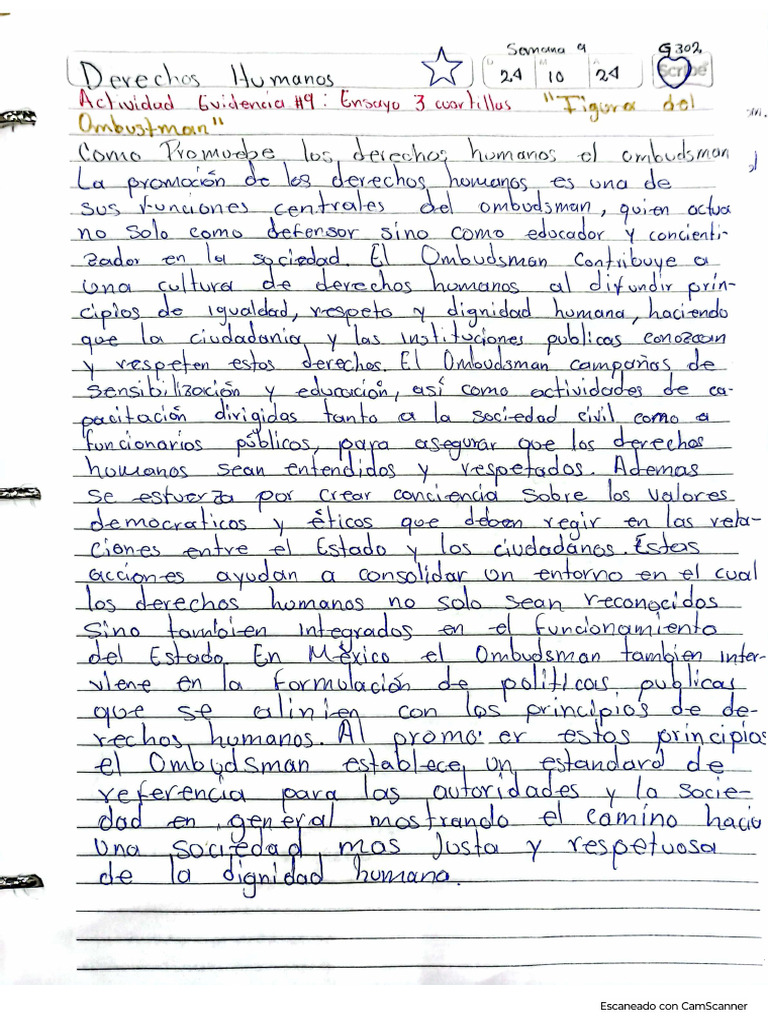 Semana 9
G302
Derechos Humanos
D M A
24 10 24
Scribe
Actividad Evidencia #9: Ensayo 3 cuartillas "Figura del
Ombustman"
Como Promuebe los derechos humanos el ombudsman
La promoción de los derechos humanos es una de
sus funciones centrales del ombudsman, quien actua
no solo como defensor sino como educador y concienti-
zador en la sociedad. El Ombudsman contribuye a
una cultura de derechos humanos al difundir prin-
cipios de igualdad, respeto y dignidad humana, haciendo
que la ciudadania y las instituciones publicas conozcan
y respeten estos derechos. El Ombudsman campañas de
sensibilización y educación, así como actividades de ca-
pacitación dirigidas tanto a la sociedad civil como a
funcionarios públicos, para asegurar que los derechos
humanos sean entendidos y respetados. Ademas
se esfuerza por crear conciencia sobre los valores
democraticos y éticos que deben regir en las rela-
ciones entre el Estado y los ciudadanos. Estas
acciones ayudan a consolidar un entorno en el cual
los derechos humanos no solo sean reconocidos
sino tambien integrados en el funcionamiento
del Estado. En México el Ombudsman tambien inter-
viene en la formulación de politicas publicas
que se alinien con los principios de de-
rechos humanos. Al promo er estos principios
el Ombudsman establece un estandard de
referencia para las autoridades y la socie-
dad en general mostrando el camino hacia
una sociedad mas justa y respetuosa
de la dignidad humana.
Escaneado con CamScanner